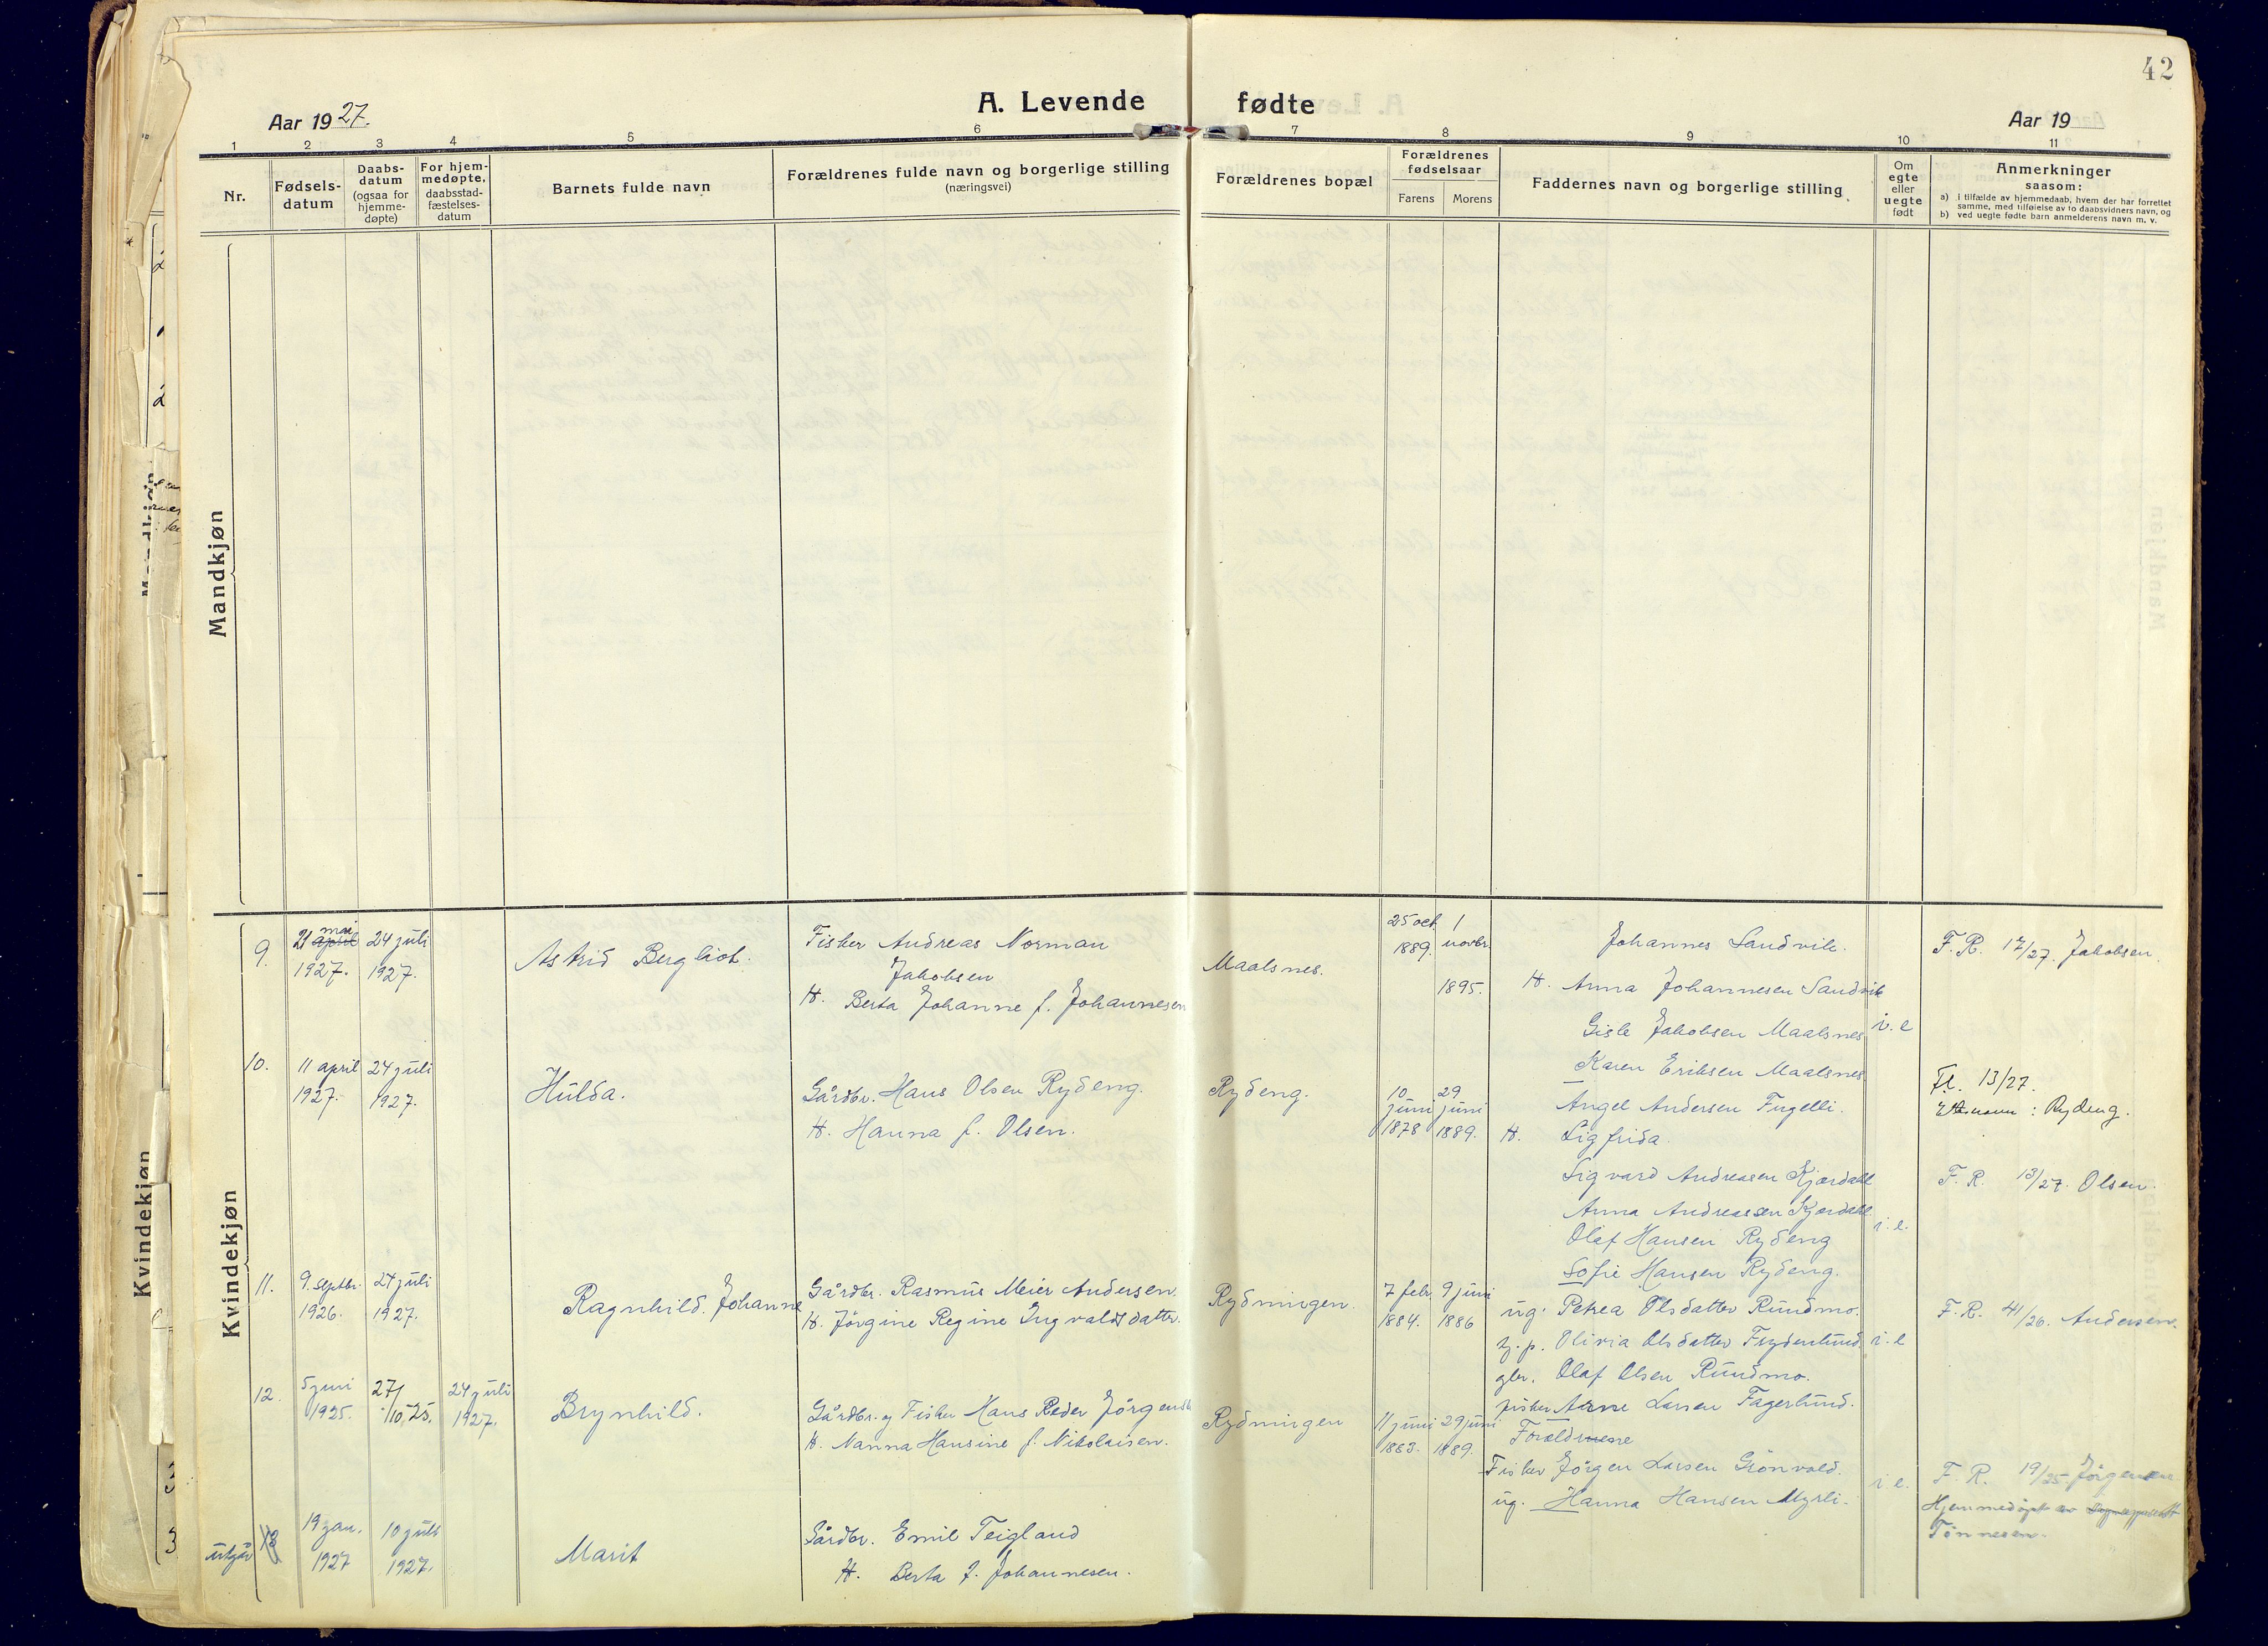 42
A. Levende fødte
Aar 1927.
Aar 19
1 2 3 4 5 6 7 8 9 10 11
Nr.
Fødsels-
datum
Daabs-
datum
(ogsaa for
hjemme-
døpte)
For hjem-
medøpte.
daabsstad-
fæstelses-
datum
Barnets fulde navn
Forældrenes fulde navn og borgerlige stilling
(næringsvei)
Forældrenes bopæl
Forældrenes
fødselsaar
Farens
Morens
Faddernes navn og borgerlige stilling
Om
egte
eller
uegte
født
Anmerkninger
saasom:
a) i tilfælde av hjemmedaab, hvem der har forrettet
samme, med tilføielse av to daabsvidners navn, og
b) ved uegte fødte barn anmelderens navn m. v.
Mandkjøn
Kvindekjøn
9.
21 april mai
1927.
24 juli
1927.
Astrid Bergliot.
Fisker Andreas Norman
Jakobsen
H. Berta Johanne f. Johannesen
Maalsnes.
25 oct.
1889.
1
novbr.
1895.
Johannes Sandvik.
H. Anna Johannesen Sandvik
Gisle Jakobsen Maalsnes
Karen Eriksen Maalsnes
i. e
F. R. 17/27. Jakobsen.
10.
11 april
1927.
24 juli
1927.
Hulda.
Gårdbr. Hans Olsen Rydeng.
H. Hanna f. Olsen.
Rydeng.
10
juni
1878
29
juni
1889.
Angel Andersen Fugelli.
H. Sigfrida.
Sigvard Andreasen Kjærdahl
Anna Andreasen Kjærdahl
Olaf Hansen Rydeng
Sofie Hansen Rydeng.
i. e.
Fl. 13/27.
Etternavn: Rydeng.
F. R. 13/27. Olsen.
11.
9. septbr.
1926.
24 juli
1927.
Ragnhild. Johanne
Gårdbr. Rasmus Meier Andersen.
H. Jörgine Regine Ingvaldsdatter.
Rydningen.
7 febr.
1884.
9 juni
1886
ug. Petrea Olsdatter Rundmo.
Olivia Olsdatter Frydenlund
gbr. Olaf Olsen Rundmo.
fisker Arne Larsen Fagerlund.
i. e
F. R. 41/26. Andersen.
12.
5 juni
1925.
27/10,25.
24 juli
1927.
Brynhild.
Gårdbr. og Fisker Hans Peder Jörgensen
H. Nanna Hansine f. Nikolaisen.
Rydningen
11 juni
1883.
29 juni
1889.
Forældrene
Fisker Jörgen Larsen Grönvold.
ug. Hanna Hansen Myrli.
i e.
F. R. 19/25. Jörgensen
Hjemmedöpt av
Tönnesen.
utgår 13
19 jan.
1927
10 juli
1927.
Marit
Gårdbr. Emil Teigland
H. Berta f. Johannesen.